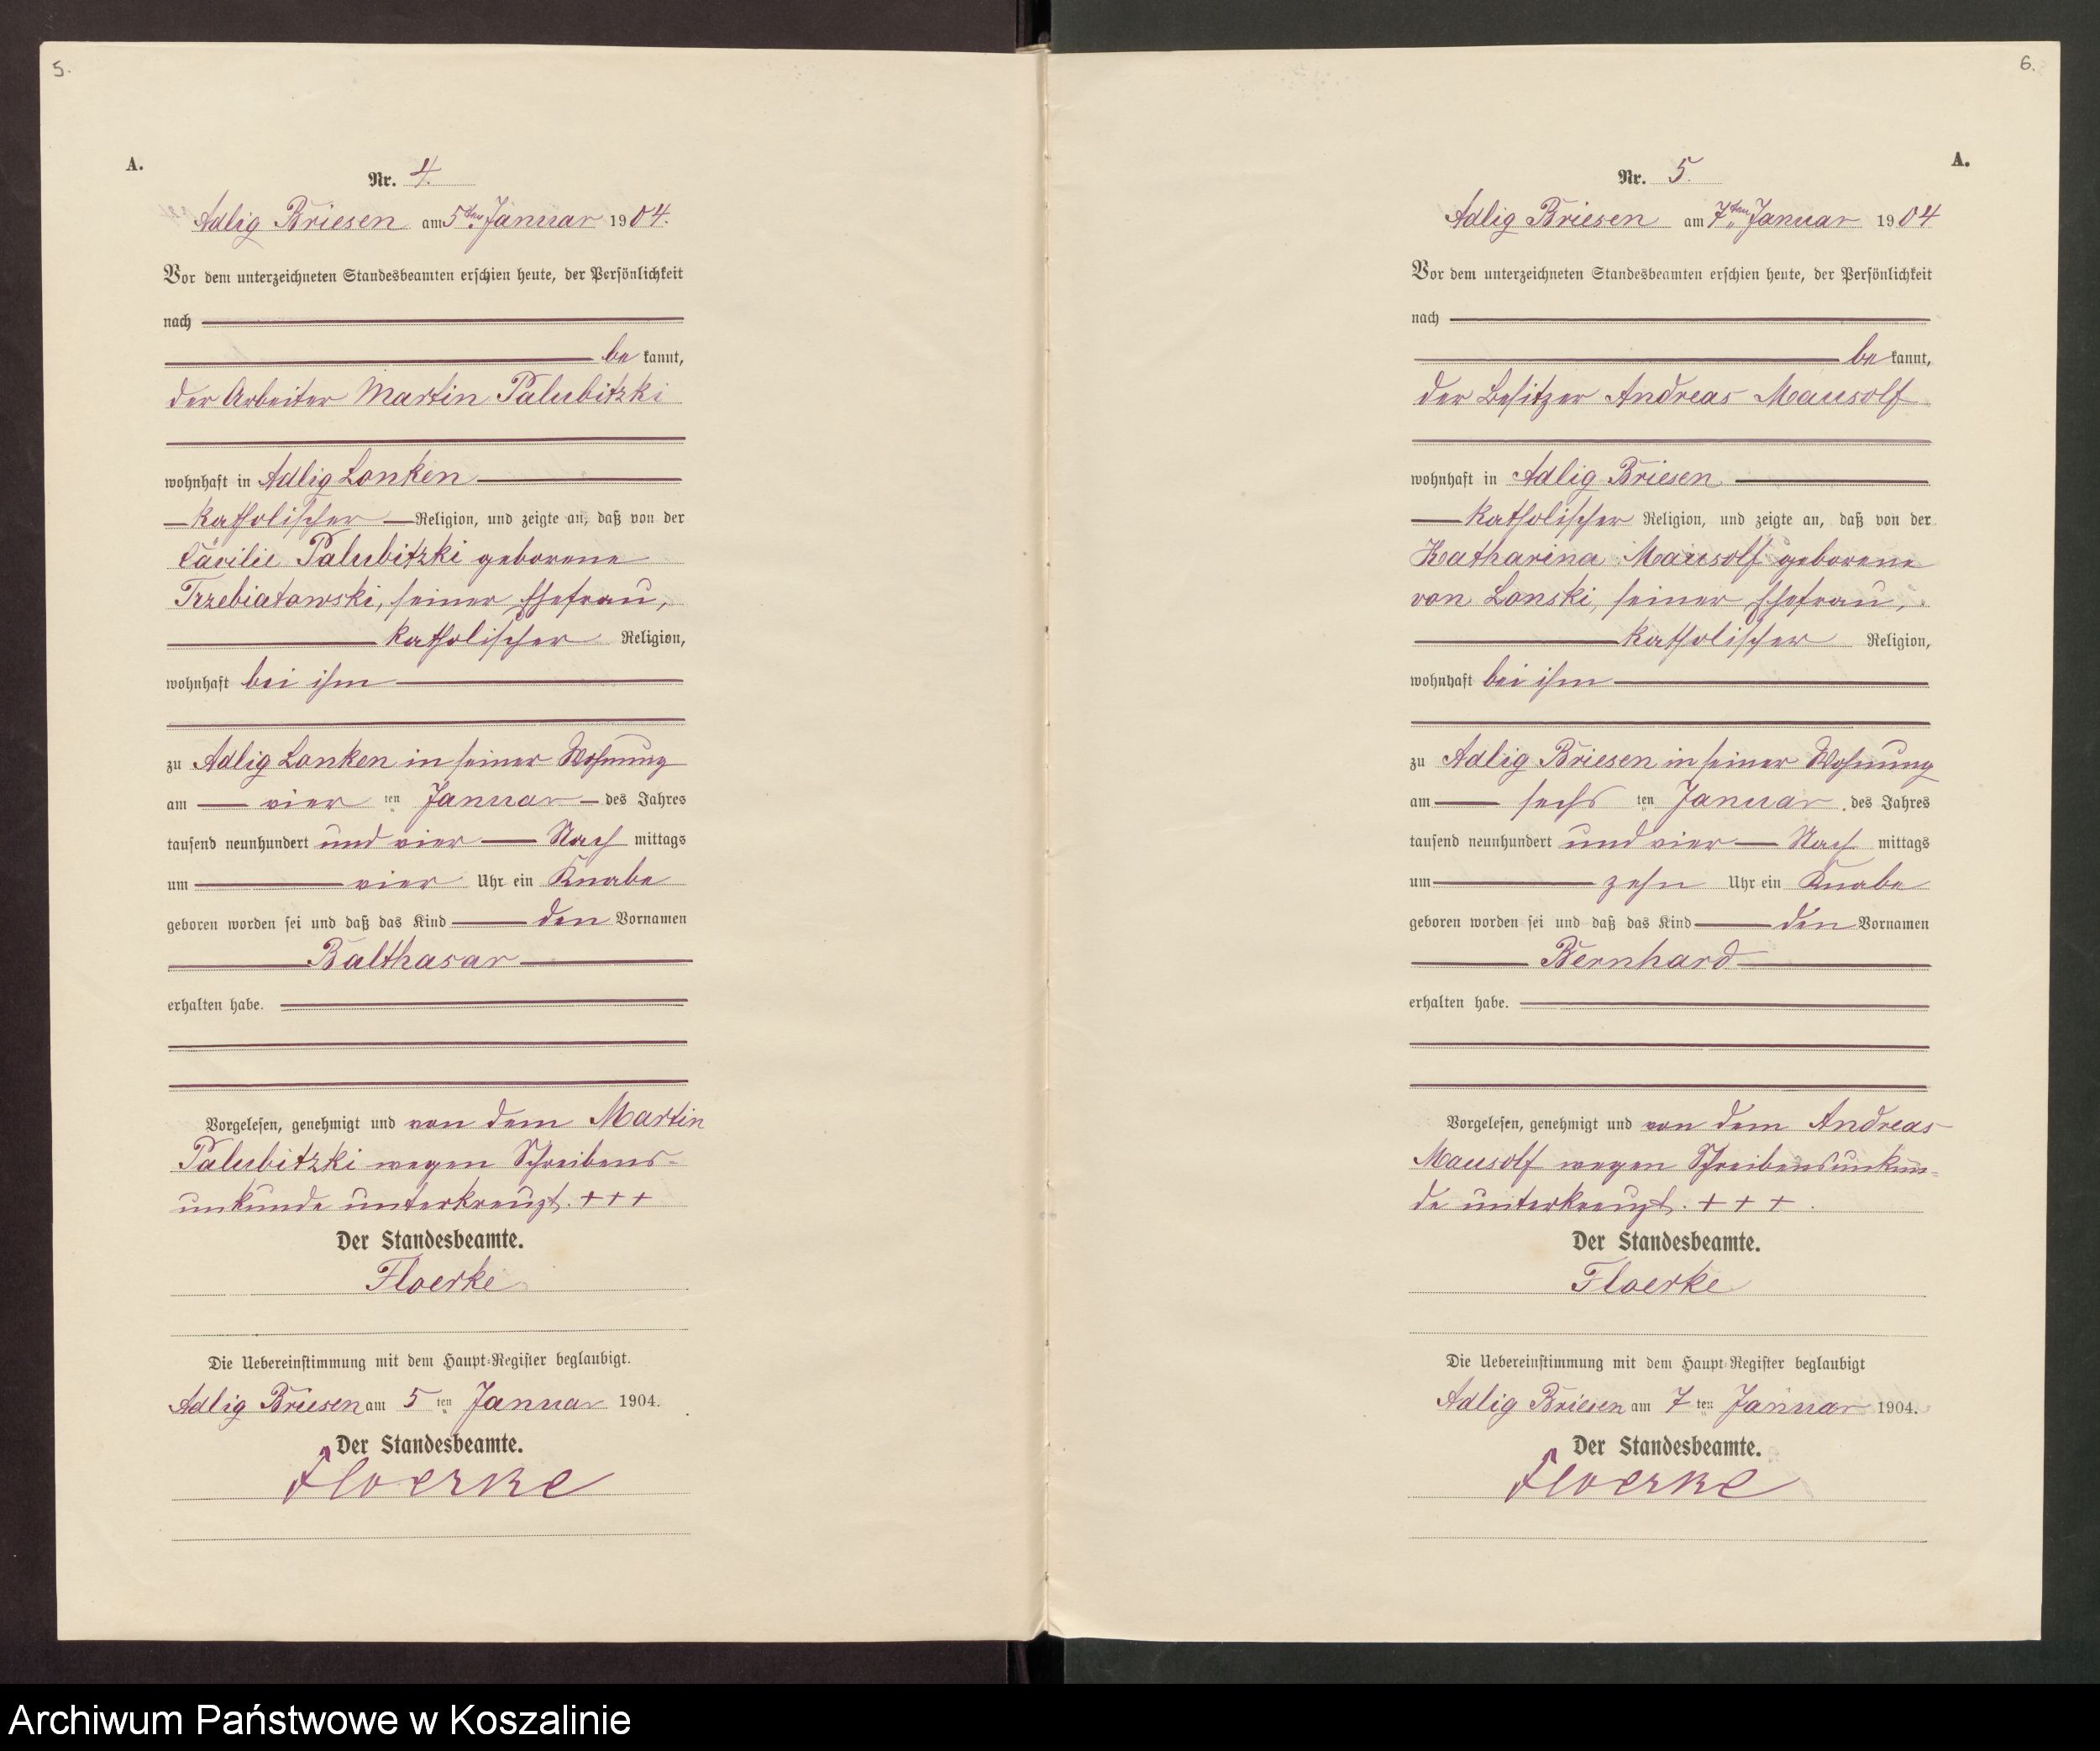 5.
A.
Nr. 4.
Adlig Briesen am 5ten Januar 1904.
Vor dem unterzeichneten Standesbeamten erschien heute, der Persönlichkeit
nach
be kannt,
der Arbeiter Martin Palubitzki
wohnhaft in Adlig Lonken
katholischer Religion, und zeigte an, daß von der
Cäcilie Palubitzki geborene
Trzebiatowski, seiner Ehefrau,
katholischer Religion,
wohnhaft bei ihm
zu Adlig Lonken in seiner Wohnung
am vier ten Januar des Jahres
tausend neunhundert und vier Nach mittags
um vier Uhr ein Knabe
geboren worden sei und daß das Kind den Vornamen
Balthasar
erhalten habe.
Vorgelesen, genehmigt und von dem Martin
Palubitzki wegen Schreibens-
unkunde unterkreuzt. + + +
Der Standesbeamte.
Floerke
Die Uebereinstimmung mit dem Haupt-Register beglaubigt.
Adlig Briesen am 5 ten Januar 1904.
Der Standesbeamte.
Floerke
6.
A.
Nr. 5.
Adlig Briesen am 7ten Januar 1904
Vor dem unterzeichneten Standesbeamten erschien heute, der Persönlichkeit
nach
be kannt,
der Besitzer Andreas Mausolf
wohnhaft in Adlig Briesen
katholischer Religion, und zeigte an, daß von der
Katharina Mausolf geborene
von Lonski, seiner Ehefrau,
katholischer Religion,
wohnhaft bei ihm
zu Adlig Briesen in seiner Wohnung
am sechs ten Januar des Jahres
tausend neunhundert und vier Nach mittags
um zehn Uhr ein Knabe
geboren worden sei und daß das Kind den Vornamen
Bernhard
erhalten habe.
Vorgelesen, genehmigt und von dem Andreas
Mausolf wegen Schreibensunkun-
de unterkreuzt. + + +
Der Standesbeamte.
Floerke
Die Uebereinstimmung mit dem Haupt-Register beglaubigt
Adlig Briesen am 7 ten Januar 1904.
Der Standesbeamte.
Floerke
Archiwum Państwowe w Koszalinie